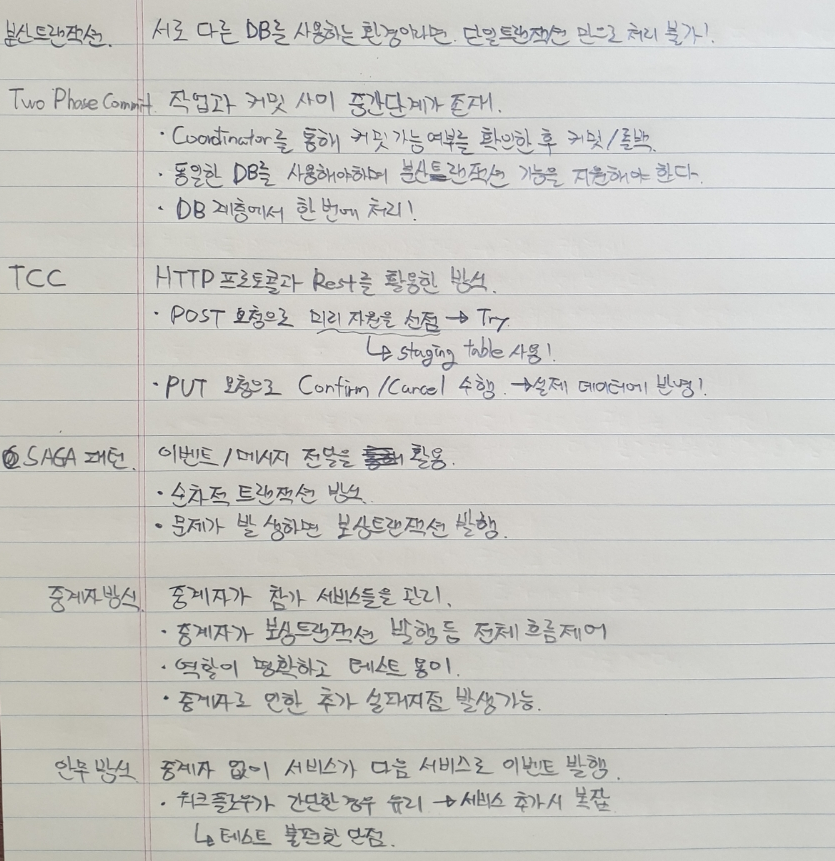 분산트랜잭션. 서로 다른 DB를 사용하는 환경이라면. 단일트랜잭션 만으로 처리 불가!.
Two Phase Commit. 작업과 커밋 사이 중간단계가 존재!.
· Coordinator를 통해 커밋가능여부를 확인한 후 커밋/롤백.
· 동일한 DB를 사용해야하며 분산트랜잭션 기능을 지원해야 한다.
· DB 계층에서 한 번에 처리!
TCC HTTP 프로토콜과 Rest를 활용한 방식.
· POST 요청으로 미리 자원을 선점 → Try.
↳ staging table 사용!.
· PUT 요청으로 Confirm / Cancel 수행. → 실제 데이터에 반영!
SAGA 패턴. 이벤트/메시지 전달을 활용.
· 순차적 트랜잭션 방식.
· 문제가 발생하면 보상트랜잭션 발행.
중계자방식. 중계자가 참가 서비스들을 관리.
· 중계자가 보상트랜잭션 발행 등 전체 흐름제어
· 역할이 명확하고 테스트 용이.
· 중계자로 인한 추가 실패지점 발생가능.
안무 방식. 중계자 없이 서비스가 다음 서비스로 이벤트 발행.
· 워크플로우가 간단한 경우 유리 → 서비스 추가시 복잡
↳ 테스트 불편한 단점.